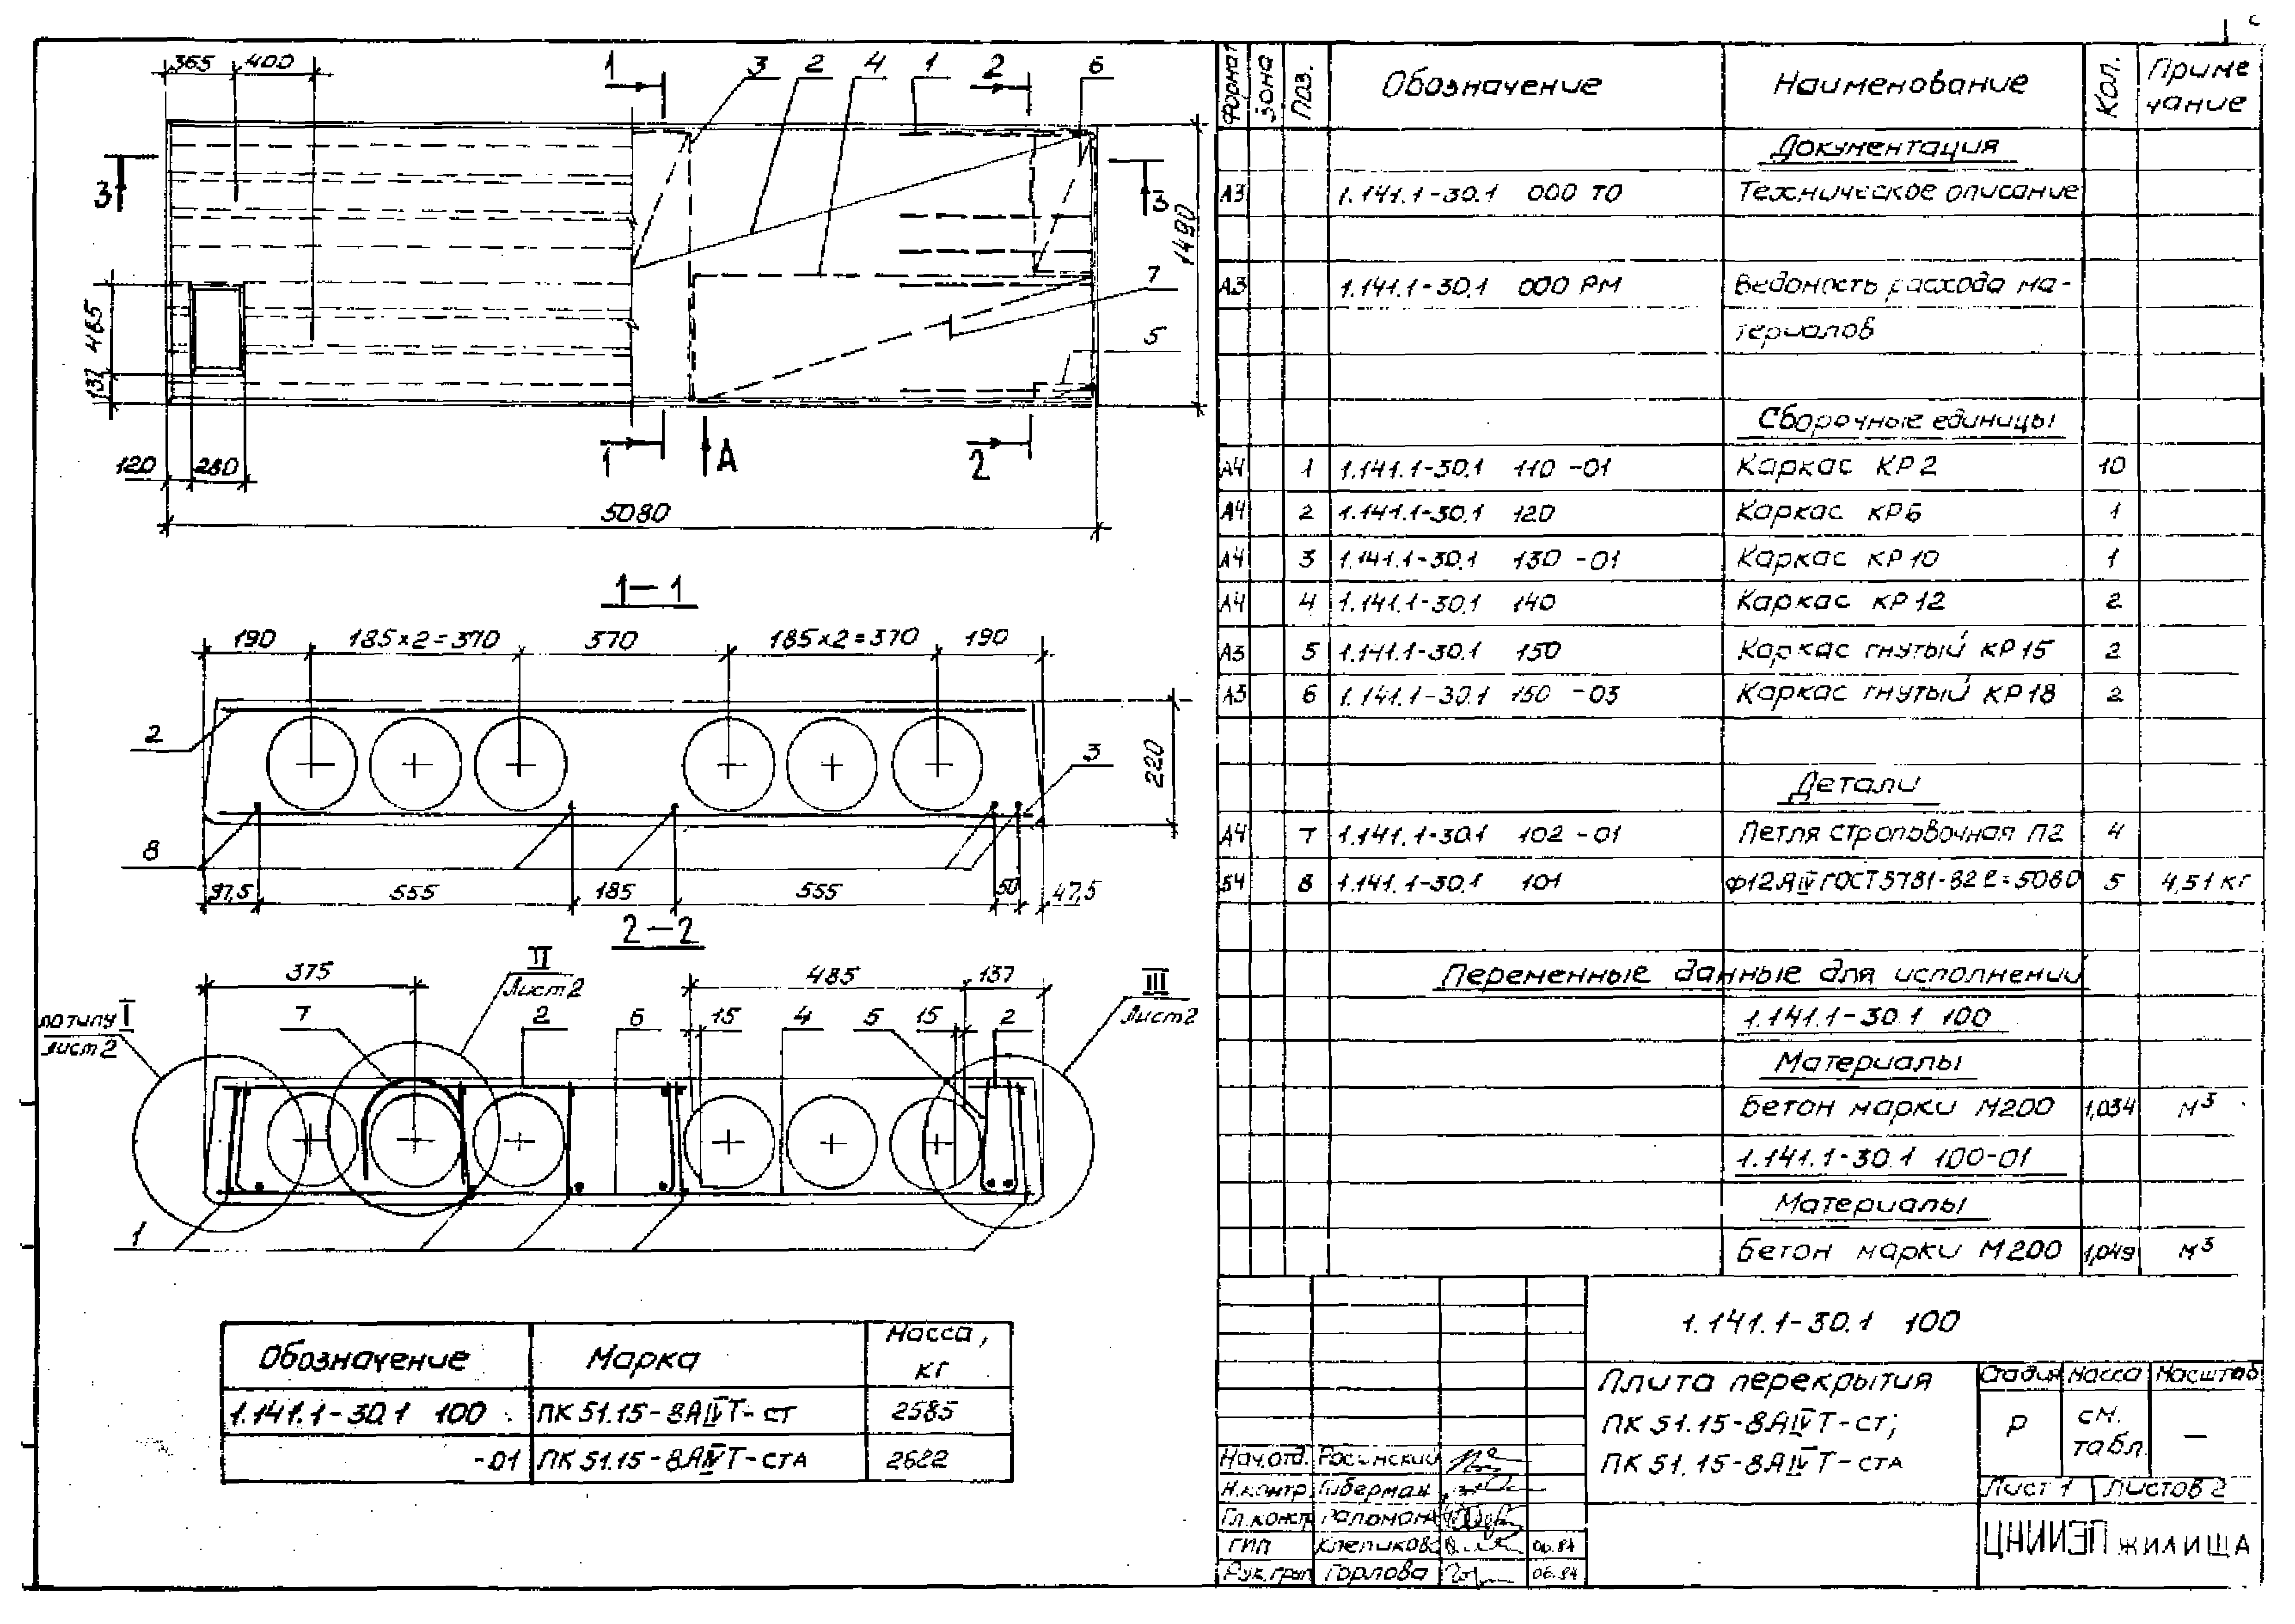 365 400
1 3 2 4 1 2 6
3 3
1490
7
5
465
137
1 А 2
120 280
5080
1-1
190 185×2=370 370 185×2=370 190
2
3
220
8
97,5 555 185 555 50 47,5
2-2
375 II 485 137 III
Лист 2
Лист 2
по типу I
Лист 2
7 2 6 15 4 5 15 2
1
Обозначение Марка Масса, кг
1.141.1-30.1 100 ПК 51.15-8АIVТ-ст 2585
-01 ПК 51.15-8АIVТ-ста 2622
Формат Зона Поз. Обозначение Наименование Кол. Приме
чание
Документация
А3 1.141.1-30.1 000 ТО Техническое описание
А3 1.141.1-30.1 000 РМ Ведомость расхода ма-
териалов
Сборочные единицы
А4 1 1.141.1-30.1 110 -01 Каркас КР2 10
А4 2 1.141.1-30.1 120 Каркас КР6 1
А4 3 1.141.1-30.1 130 -01 Каркас КР10 1
А4 4 1.141.1-30.1 140 Каркас КР12 2
А3 5 1.141.1-30.1 150 Каркас гнутый КР15 2
А3 6 1.141.1-30.1 150 -03 Каркас гнутый КР18 2
Детали
А4 7 1.141.1-30.1 102 -01 Петля строповочная П2 4
Б4 8 1.141.1-30.1 101 Ф12АIV ГОСТ 5781-82 ℓ=5080 5 4,51 кг
Переменные данные для исполнений
1.141.1-30.1 100
Материалы
Бетон марки М200 1,034 м³
1.141.1-30.1 100-01
Материалы
Бетон марки М200 1,049 м³
1.141.1-30.1 100
Плита перекрытия
ПК 51.15-8АIVТ-ст;
ПК 51.15-8АIVТ-ста
Стадия Масса Масштаб
Р см.
табл. —
Лист 1 Листов 2
ЦНИИЭП жилища
Нач.отд.
Н.контр. Гиберман
Гл.конст.
ГИП Клепиково 06.84
Рук.груп Горлова 06.84